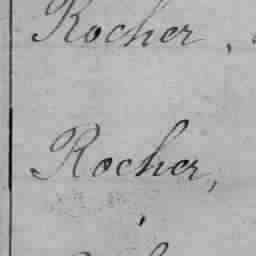 Rocher,
Rocher,